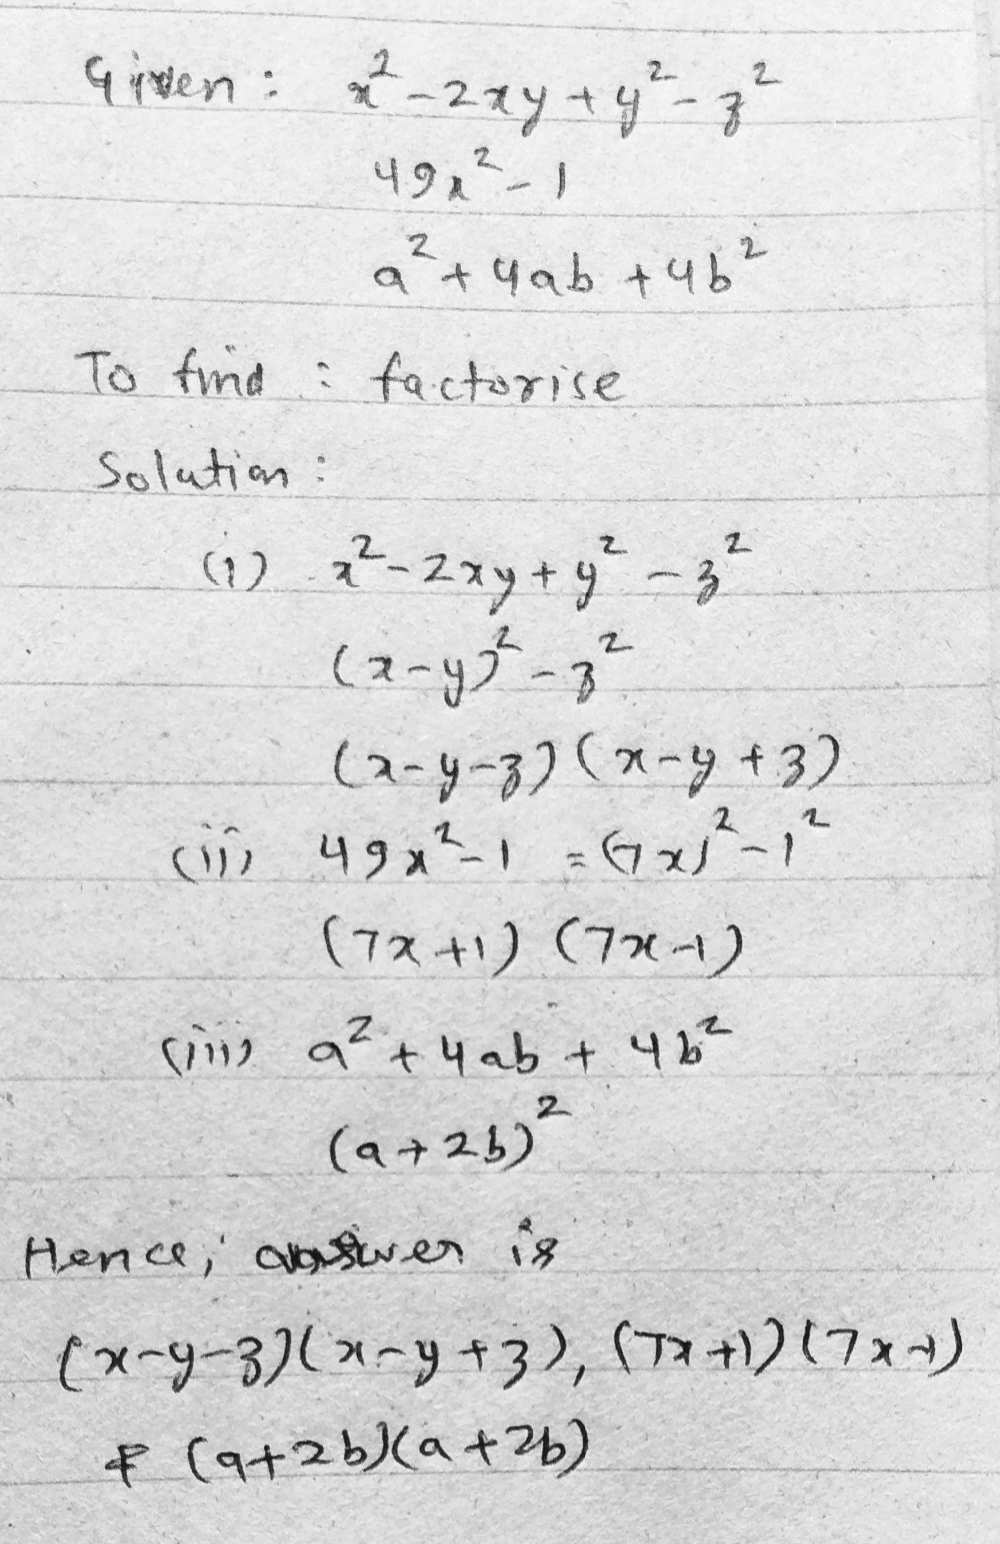 Given : x² - 2xy + y² - z²
49x² - 1
a² + 4ab + 4b²
To find : factorise
Solution :
(i) x² - 2xy + y² - z²
(x-y)² - z²
(x-y-z) (x-y+z)
(ii) 49x² - 1 = (7x)² - 1²
(7x+1) (7x-1)
(iii) a² + 4ab + 4b²
(a+2b)²
Hence, answer is
(x-y-z)(x-y+z), (7x+1)(7x-1)
& (a+2b)(a+2b)